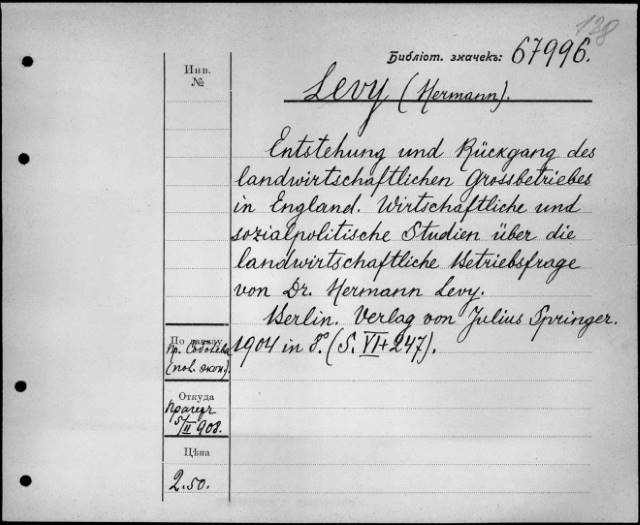 128
Библіот. значекъ: 67996.
Инв.
№
Levy (Hermann).
Entstehung und Rückgang des
landwirtschaftlichen Grossbetriebes
in England. Wirtschaftliche und
sozialpolitische Studien über die
landwirtschaftliche Betriebsfrage
von Dr. Hermann Levy.
Berlin. Verlag von Julius Springer.
1904 in 8°. (S. VI+247).
По
Пр.
Откуда
Прагеръ
5/II 908.
Цѣна
2.50.